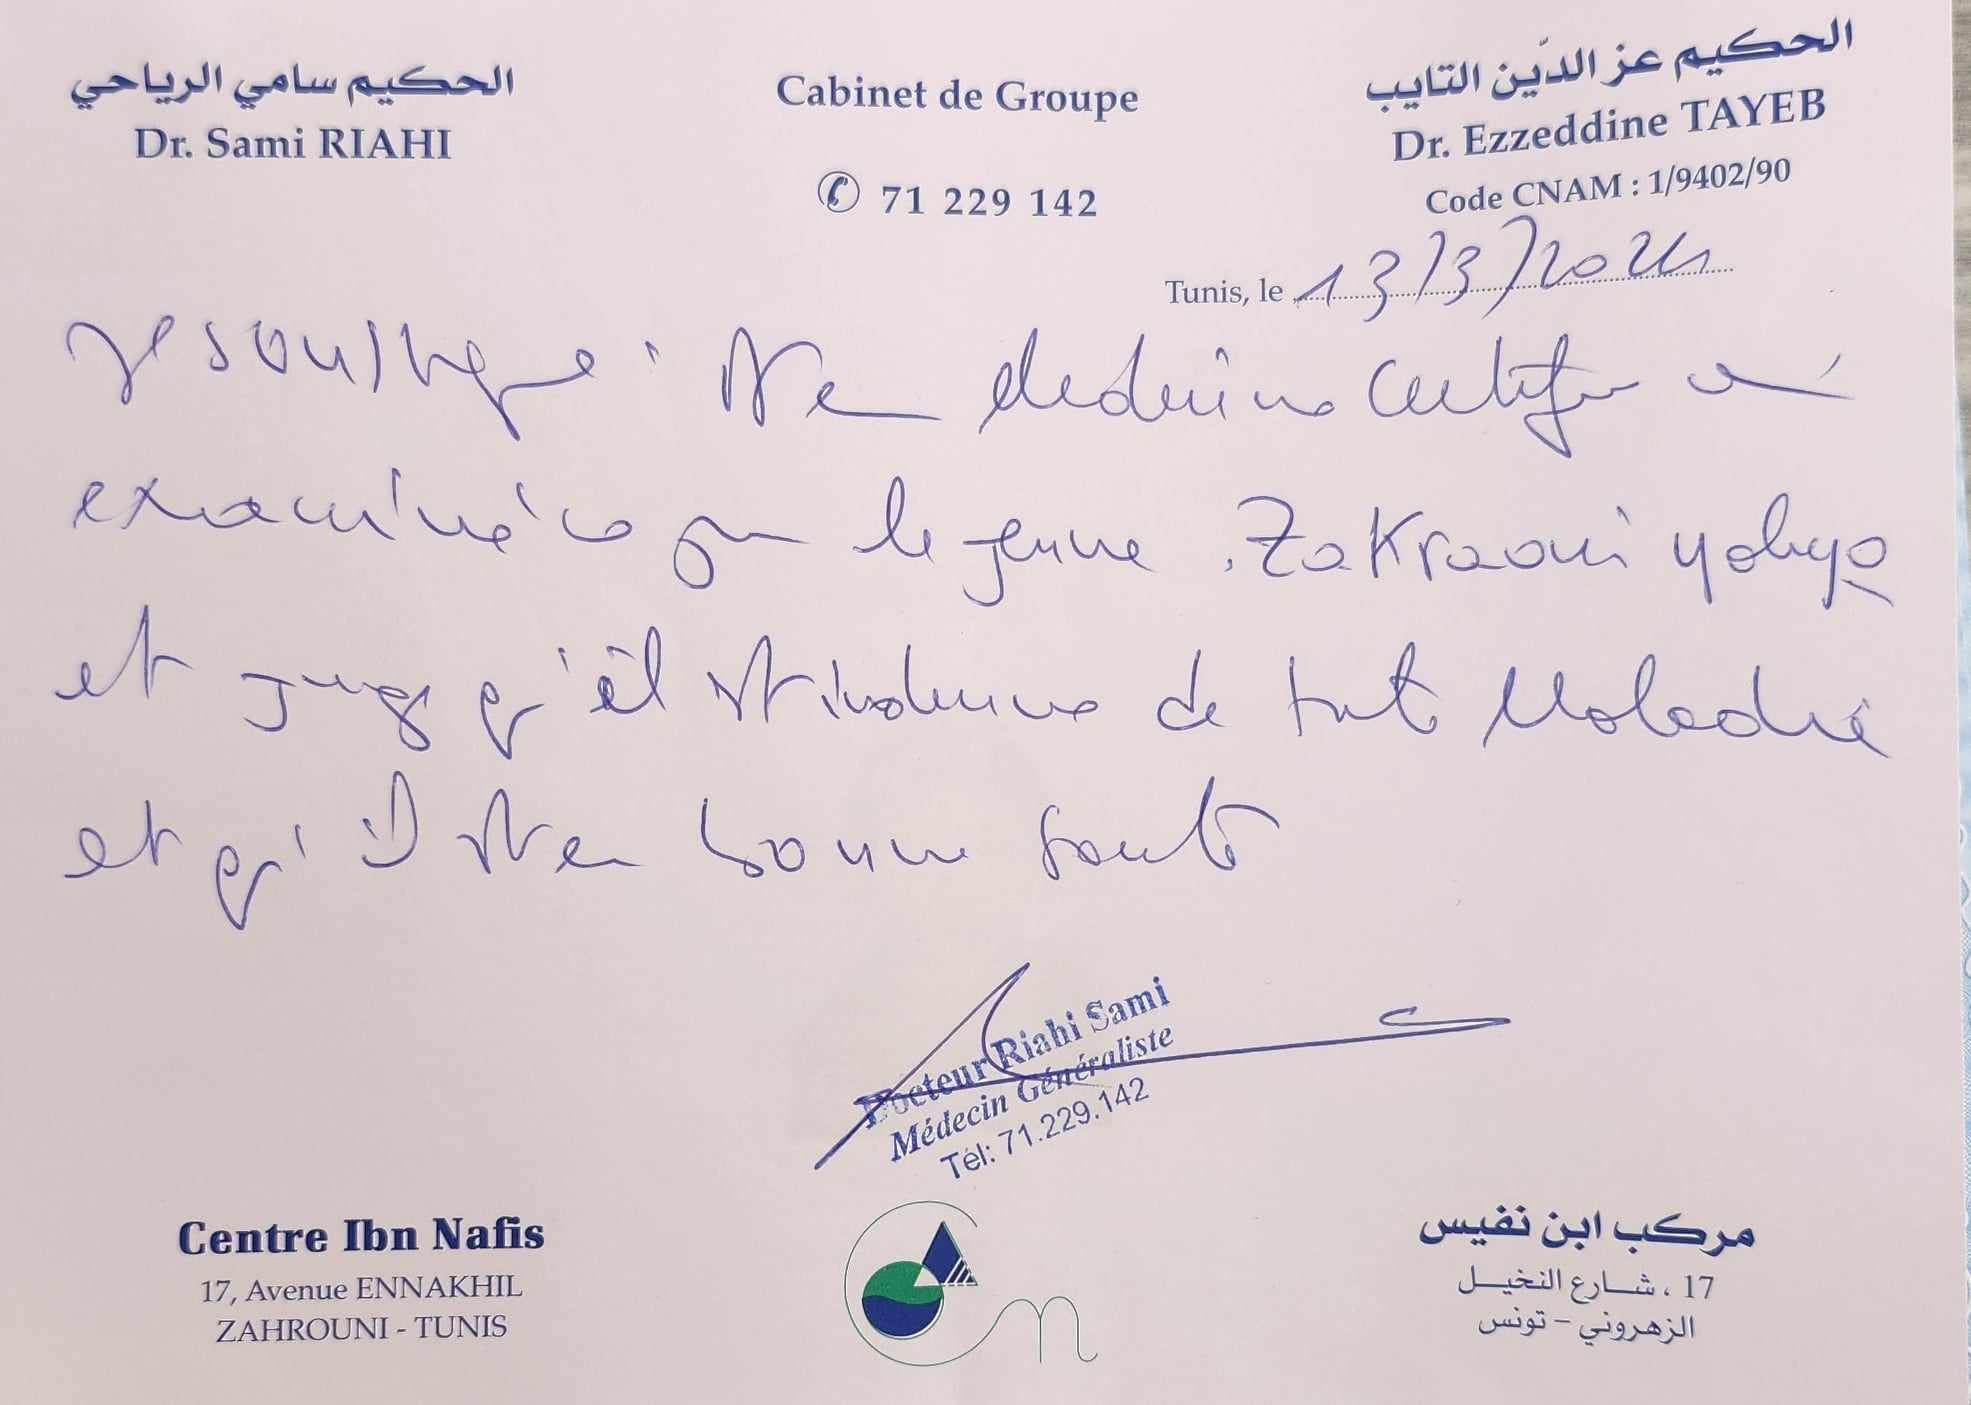 الحكيم سامي الرياحي
Dr. Sami RIAHI
Cabinet de Groupe
✆ 71 229 142
الحكيم عز الدّين التايب
Dr. Ezzeddine TAYEB
Code CNAM : 1/9402/90
Tunis, le 13/3/2024
Je soussigné Dr en Medecine certifie
examiné le jeune Zakraoui yahya
et juge qu'il est indemne de tte Maladie
et qu'il est en bonne santé
Docteur Riahi Sami
Médecin Généraliste
Tél: 71.229.142
Centre Ibn Nafis
17, Avenue ENNAKHIL
ZAHROUNI - TUNIS
مركب ابن نفيس
17 ، شارع النخيل
الزهروني – تونس